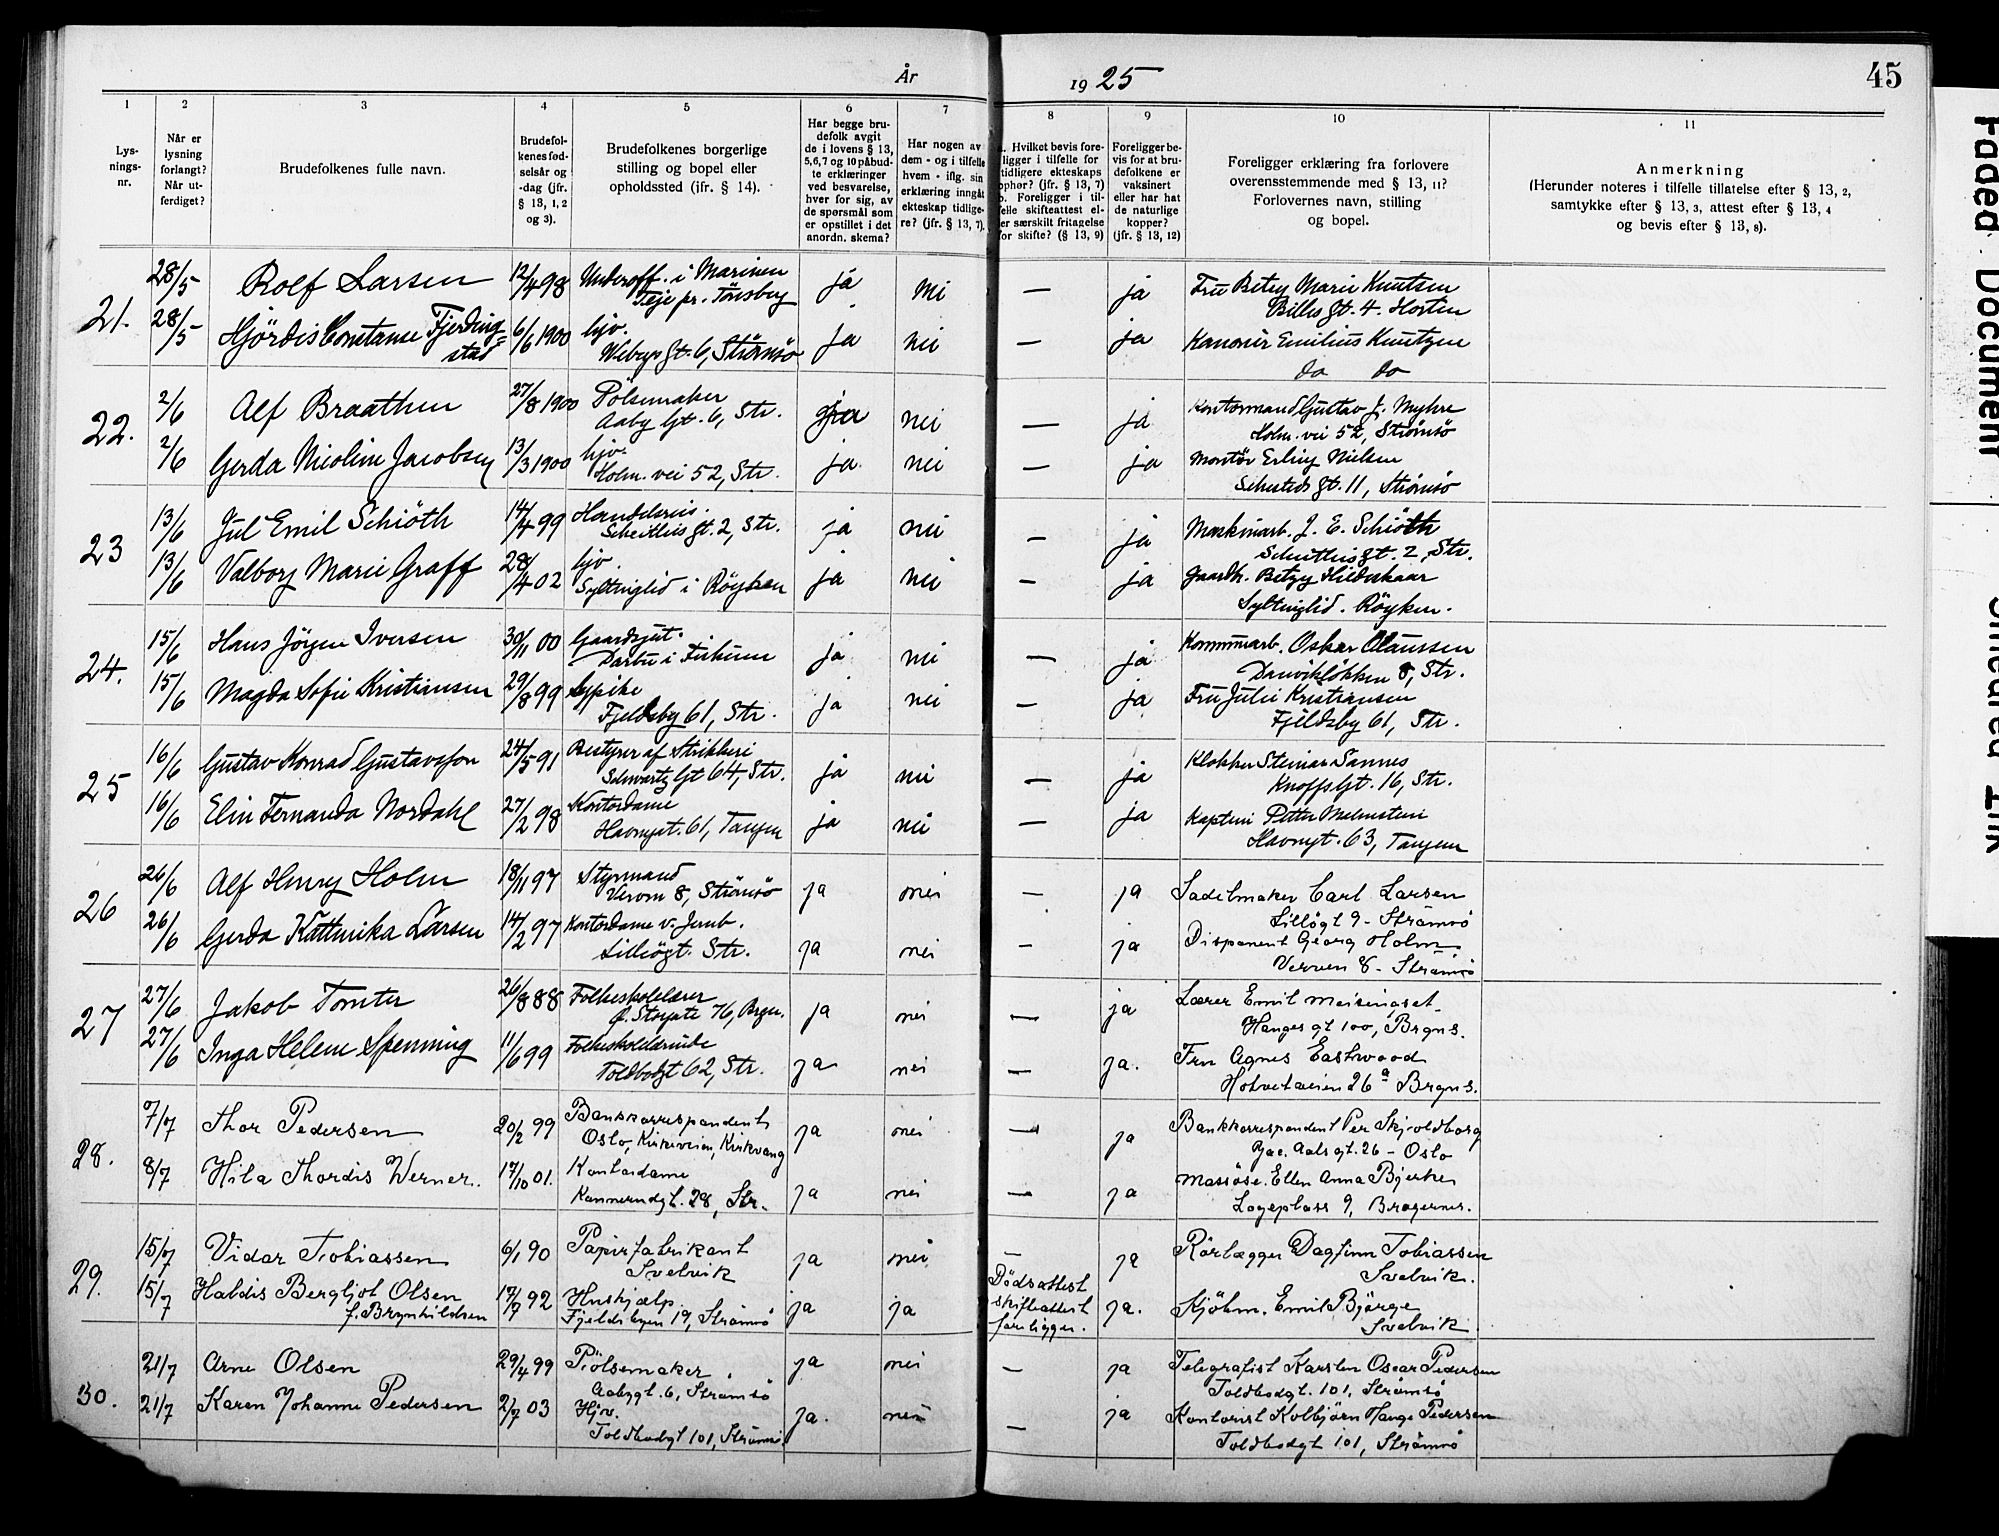 År
19 25
45
1
2
3
4
5
6
7
8
9
10
11
Lys-
nings-
nr.
Når er
lysning
forlangt?
Når ut-
ferdiget?
Brudefolkenes fulle navn.
Brudefol-
kenes fød-
selsår og
-dag (jfr.
§ 13, 1, 2
og 3).
Brudefolkenes borgerlige
stilling og bopel eller
opholdssted (ifr. § 14).
Har begge bru-
defolk avgit
de i lovens § 13,
5,6,7 og 10 påbud-
te erklæringer
ved besvarelse,
hver for sig, av
de spørsmål som
er opstillet i det
anordn. skema?
Har nogen av
dem - og i tilfelle
hvem - iflg. sin
erklæring inngåt
ekteskap tidlige-
re? (jfr. § 13, 7).
. Hvilket bevis fore-
ligger i tilfelle for
tidligere ekteskaps
ophør? (jfr. § 13, 7)
b. Foreligger i til-
felle skifteattest el-
er særskilt fritagelse
for skifte? (§ 13, 9)
Foreligger be-
vis for at bru-
defolkene er
vaksinert
eller har hat
de naturlige
kopper?
(jfr. § 13, 12)
Foreligger erklæring fra forlovere
overensstemmende med § 13, 11?
Forlovernes navn, stilling
og bopel.
Anmerkning
(Herunder noteres i tilfelle tillatelse efter § 13, 2,
samtykke efter § 13, 3, attest efter § 13, 4
og bevis efter § 13, 8).
21.
28/5 Rolf Larsen 12/4 98 Underoff. i Marinen ja nei — ja Fru Betzy Marie Knutsen
Teje pr. Tönsberg Billes gt. 4. Horten
28/5 Hjördis Constanse Fjerding= 6/6 1900 hjv. ja nei — ja Kanonér Emilius Knutzen
stad gt. 6, Strömsö do do
22.
2/6 Alf Braathen 27/8 1900 Pölsemaker ja nei — ja Kontormand Gustav J. Myhre
Aaby gt. 6, Str. Holm. vei 52, Strömsö
2/6 Gerda Nicoline Jacobsen 13/3 1900 hjv. ja. nei — ja Montör Erling Nielsen
Holm. vei 52, Str. Sehesteds gt. 11, Strömsö
23
13/6 Jul Emil Schiöth 14/4 99 Handelsreis. ja nei — ja Maskinarb. J. E. Schiöth
Scheitlies gt. 2, Str. Scheitlies gt. 2, Str.
13/6 Valborg Marie Graff 28/4 02 hjv. ja nei — ja Gaardb. Betzy Hilderhaar
Syltinglid i Röyken Syltinglid. Röyken.
24.
15/6 Hans Jörgen Iversen 30/11 00 Gaardsgut. ja nei — ja Kommunearb. Oskar Olaussen
Darbu i Fiskum Danvikløkken 8, Str.
15/6 Magda Sofie Kristiansen 29/8 99 Sypike ja nei — ja Fru Julie Kristiansen
Fjeldsby 61, Str. Fjeldsby 61, Str.
25
16/6 Gustav Konrad Gustavsson 24/5 91 Bestyrer af Strikkeri ja nei — ja Klokker Steinar Sannes
Schwartz gt 64, Str. Knoffs gt. 16, Str.
16/6 Elin Fernanda Nordahl 27/2 98 Kontordame ja nei — ja Kaptein Petter Malmstein
Havnegt. 61, Tangen Havnegt. 63, Tangen
26
26/6 Alf Henry Holm 18/11 97 Styrmand ja nei — ja Sadelmaker Carl Larsen
8, Strömsö Lilløgt 9 - Strömsö
26/6 Gerda Kathinka Larsen 14/2 97 Kontordame v. Jernb. ja nei — ja Disponent Georg Holm
Lilløgt. Str. Verven 8 - Strömsö
27
27/6 Jakob Tomter 26/8 88 Folkeskolelærer ja nei — ja Lærer Emil Meisingset
Ø. Storgate 76, Brgn. Hauges gt 100, Brgns.
27/6 Inga Helene Spenning 11/6 99 Folkeskolelærinde ja nei — ja. Fru Agnes Eastwood
Toldbodgt 62, Str. Hotvetveien 26a Brgns.
28.
7/7 Thor Pedersen 20/2 99 Bankkorrespondent ja nei — ja Bankkorrespondent Per Skjoldborg
Oslo, Kirkeveien, Kirkvang Jac. Aals gt. 26 - Oslo
8/7 Hila Thordis Werner. 17/10 01. Kontordame ja nei — ja Massöse. Ellen Anna Bjerke
gt. 28, Str. Logeplass 9, Bragernes.
29.
15/7 Vidar Tobiassen 6/1 90 Papirfabrikant ja nei — ja Rörlægger Dagfinn Tobiassen
Svelvik Svelvik.
15/7 Haldis Bergljot Olsen 17/9 92 Hushjælp ja ja Dödsattest ja. Kjöbm. Emil Bjørge
f. Brynhildsen Fjeldsbyen 19, Strömsö skifteattest Svelvik
foreligger.
30.
21/7 Arne Olsen 29/4 99 Pölsemaker ja nei — ja Telegrafist Karsten Oscar Pedersen
Aabygt. 6, Strömsö Toldbodgt. 101, Strömsö
21/7 Karen Johanne Pedersen 2/7 03 Hjv. ja. nei — ja Kontorist Kolbjörn Hauge Pedersen
Toldbodgt 101, Strömsö Toldbodgt 101, Strömsö
Faded Document
Smeared Ink